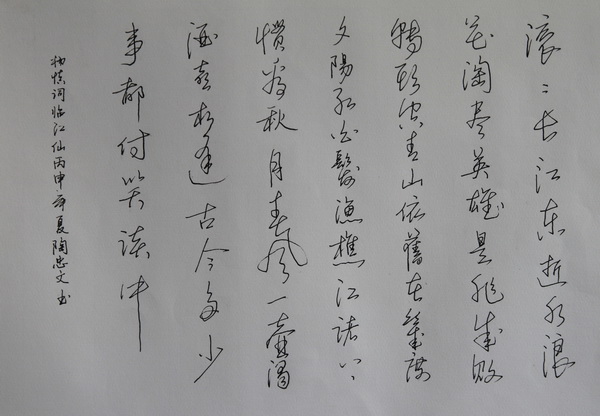 滚〻长江东逝水浪
花淘尽英雄是非成败
轉頭空青山依舊在幾度
夕陽红白髮漁樵江渚上
惯看秋月春风一壶濁
酒喜相逢古今多少
事都付笑谈中
杨慎词临江仙丙申年夏陶忠文书